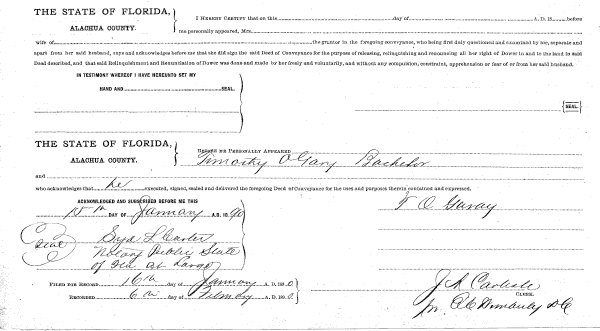 THE STATE OF FLORIDA,
ALACHUA COUNTY.
I HEREBY CERTIFY that on this day of A. D. 18 before
me personally appeared, Mrs.
wife of the grantor in the foregoing conveyance, who being first duly questioned and examined by me, separate and
apart from her said husband, says and acknowledges before me that she did sign the said Deed of Conveyance for the purpose of releasing, relinquishing and renouncing all her right of Dower in and to the land in said
Deed described, and that said Relinquishment and Renunciation of Dower was done and made by her freely and voluntarily, and without any compulsion, constraint, apprehension or fear of or from her said husband.
IN TESTIMONY WHEREOF I HAVE HEREUNTO SET MY
HAND AND SEAL.
[SEAL]
THE STATE OF FLORIDA,
ALACHUA COUNTY.
BEFORE ME PERSONALLY APPEARED
Timothy O'Gary Bachelor
and
who acknowledges that he executed, signed, sealed and delivered the foregoing Deed of Conveyance for the uses and purposes therein contained and expressed.
ACKNOWLEDGED AND SUBSCRIBED BEFORE ME THIS
15th DAY OF January A.D. 18 90
T O Garay
Seal
L Carter
Notary Public State
of at Large
FILED FOR RECORD 16th day of January A. D. 18 0
RECORDED 6th day of A. D. 18 0
J A Carlisle
CLERK.
D C